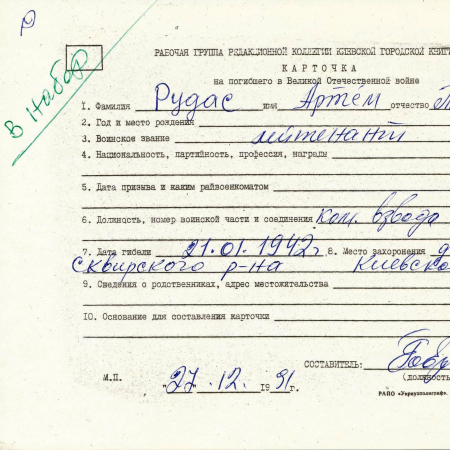 Р
В набор
РАБОЧАЯ ГРУППА РЕДАКЦИОННОЙ КОЛЛЕГИИ КИЕВСКОЙ ГОРОДСКОЙ КНИГ
КАРТОЧКА
на погибшего в Великой Отечественной войне
1. Фамилия Рудас имя Артём отчество
2. Год и место рождения
3. Воинское звание лейтенант
4. Национальность, партийность, профессия, награды
5. Дата призыва и каким райвоенкоматом
6. Должность, номер воинской части и соединения ком. взвода
7. Дата гибели 21.01.1942г 8. Место захоронения д
Сквирского р-на Киевско
9. Сведения о родственниках, адрес местожительства
10. Основание для составления карточки
СОСТАВИТЕЛЬ:
(должность
М.П. "27" 12 1991г.
РАПО «Укрвузполиграф».